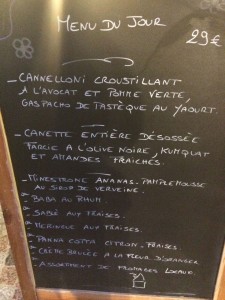 MENU DU JOUR
29€
- CANNELLONI CROUSTILLANT
À L'AVOCAT ET POMME VERTE,
GASPACHO DE PASTÈQUE AU YAOURT.
- CANETTE ENTIÈRE DÉSOSSÉE
FARCIE À L'OLIVE NOIRE, KUMQUAT
ET AMANDES FRAICHES.
- MINESTRONE ANANAS-PAMPLEMOUSSE
AU SIROP DE VERVEINE.
- BABA AU RHUM.
- SABLÉ AUX FRAISES.
- MERINGUE AUX FRAISES.
- PANNA COTTA CITRON-FRAISES.
- CRÈME BRULÉE À LA FLEUR D'ORANGER
- ASSORTIMENT DE FROMAGES LOCAUX.